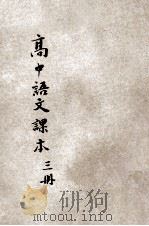 高中語文課本 三冊
www.duxiu.com